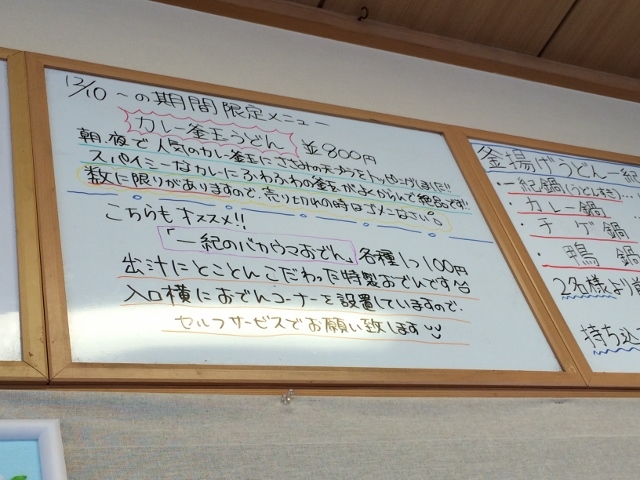 12/10〜の期間限定メニュー
カレー釜玉うどん 並800円
朝、夜で人気のカレー釜玉にささみの天ぷらをトッピングしました!!
スパイシーなカレーにふわふわの釜玉がよくからんで絶品です!!
数に限りがありますので、売り切れの時はゴメンなさい。
こちらもオススメ!!
「一紀のバカウマおでん」各種1つ100円
出汁にとことんこだわった特製おでんです
入口横におでんコーナーを設置していますので、
セルフサービスでお願い致します
釜揚げうどん一紀
・一紀鍋(うどんすき)…
・カレー鍋
・チゲ鍋
・鴨鍋
2名様より
持ち込